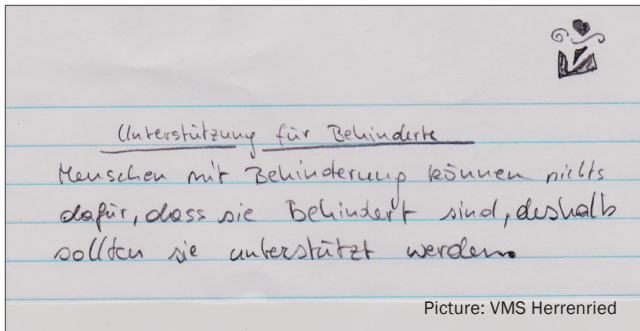 Unterstützung für Behinderte
Menschen mit Behinderung können nichts
dafür, dass sie Behindert sind, deshalb
sollten sie unterstützt werden.
Picture: VMS Herrenried